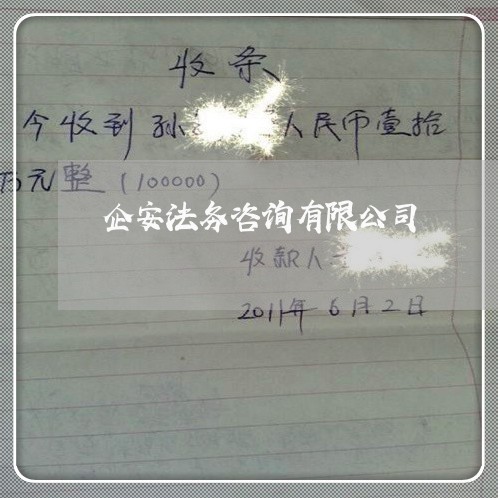 收条
今收到孙 人民币壹拾
万元整（100000）
企安法务咨询有限公司
收款人
2011年6月2日